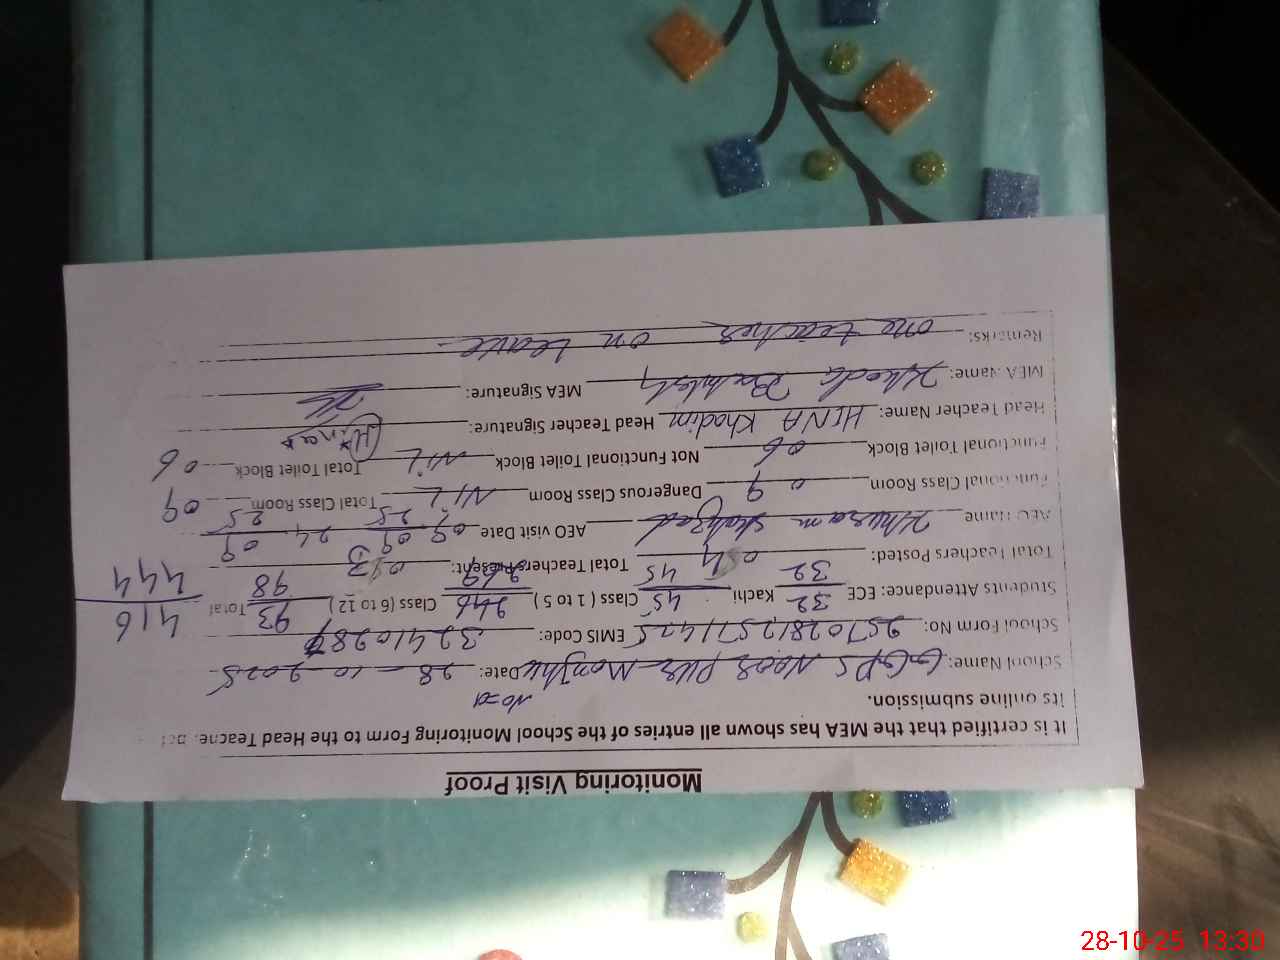 Monitoring Visit Proof
It is certified that the MEA has shown all entries of the School Monitoring Form to the Head Teacher
its online submission.
No=01
School Name: GGPS Noor Pur Manjhu Date: 28-10-2025
School Form No: 2570281257114 EMIS Code: 3241028
Students Attendance: ECE 32/32 Kachi 45/45 Class ( 1 to 5 ) 246/269 Class (6 to 12) 93/98 Total 416/444
Total Teachers Posted: 04 Total Teachers Present: 03
AEO Name Khuram Shahzad AEO visit Date 09 09 25 24 09 25
Functional Class Room 09 Dangerous Class Room NIL Total Class Room 09
Functional Toilet Block 06 Not Functional Toilet Block NIL Total Toilet Block 06
Head Teacher Name: HINA Khadim Head Teacher Signature: Hina
MEA Name: MEA Signature:
Remarks: one teacher on Leave
28-10-25 13:30